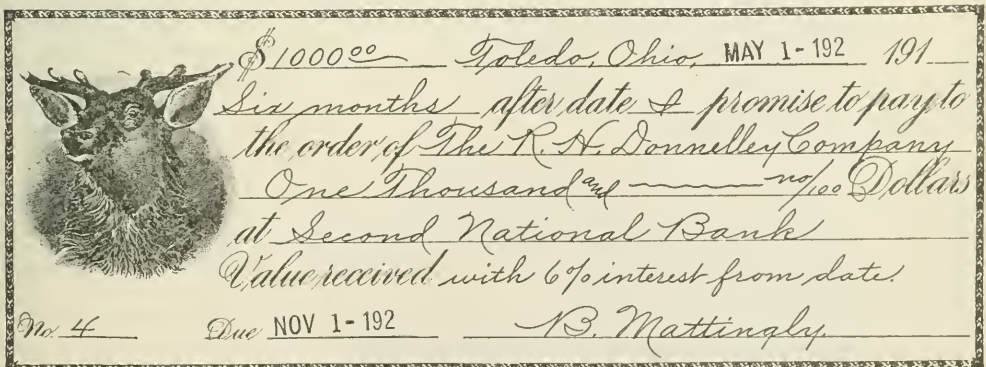 $1000 00 Toledo, Ohio, MAY 1-192 191
Six months after date I promise to pay to
the order of The R. H. Donnelley Company
One Thousand and no/100 Dollars
at Second National Bank
Value received with 6% interest from date.
No. 4 Due NOV 1-192 B. Mattingly